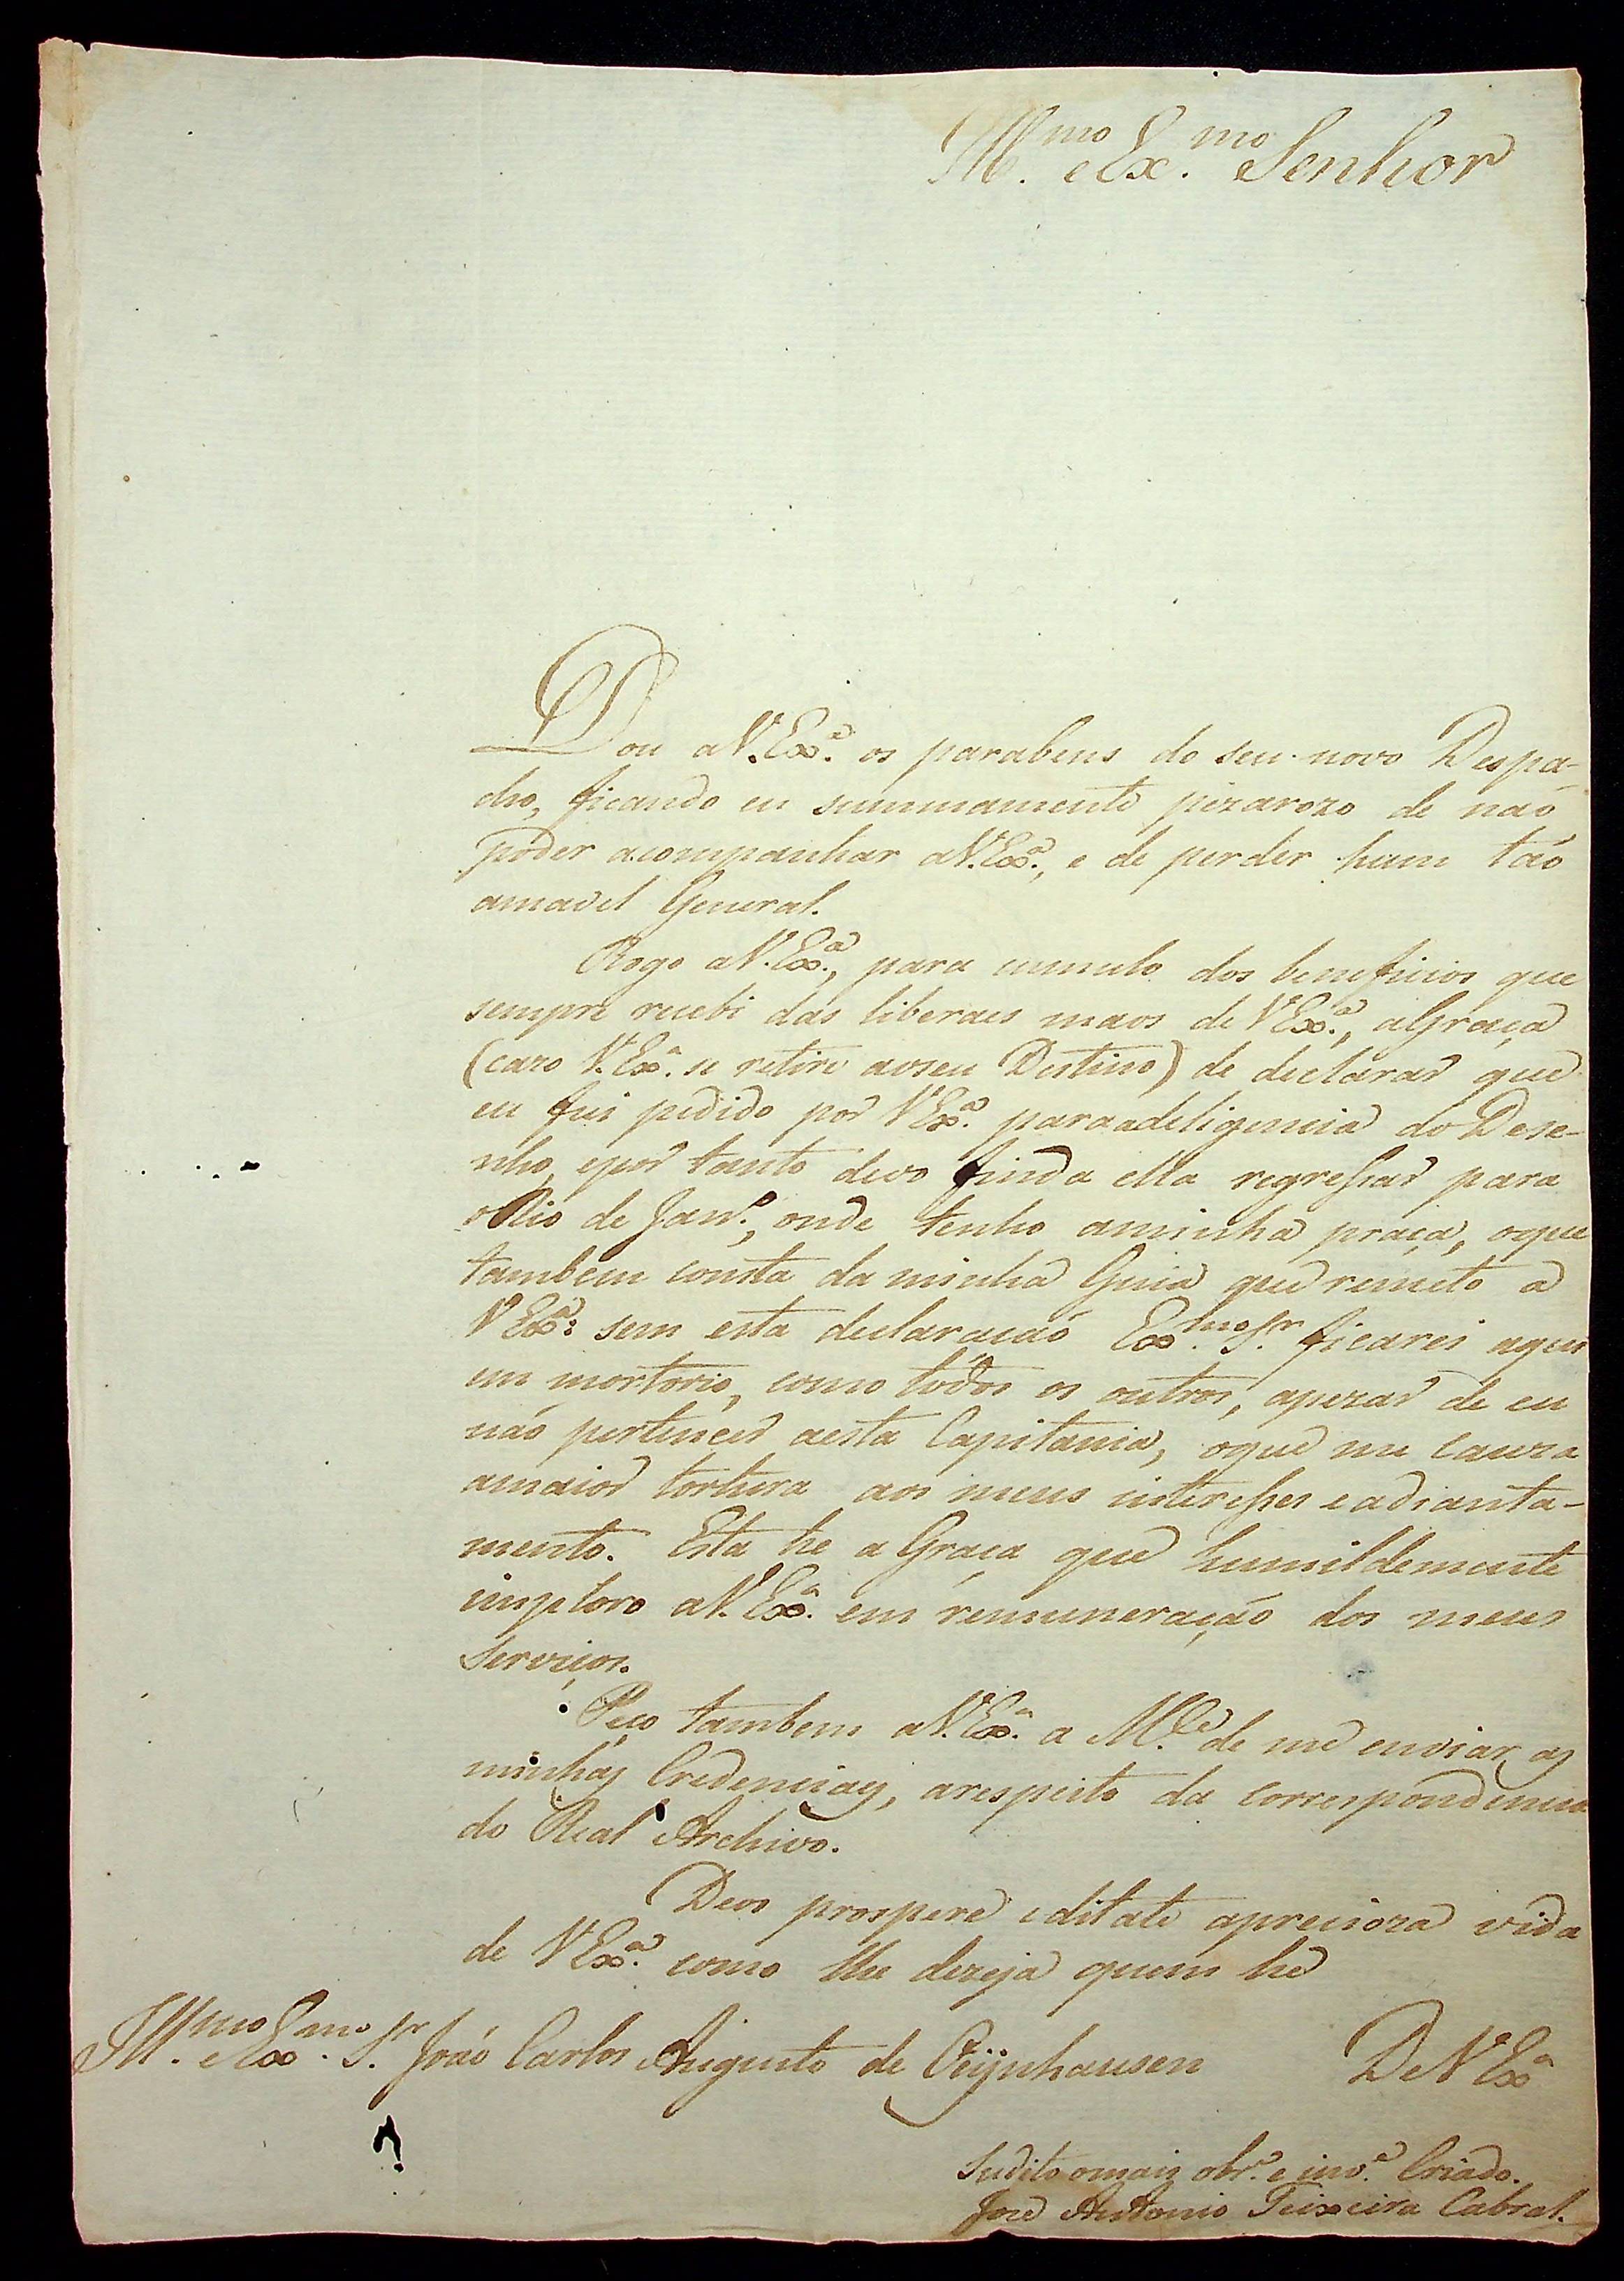 Ill.mo e Ex.mo Senhor
Dou a V. Ex.a os parabens do seu novo Despa-
cho, ficando eu summamente pezarozo de naõ
poder acompanhar a V. Ex.a, e de perder hum taõ
amavel General.
Rogo a V. Ex.a, para cumulo dos beneficios que
sempre recebi das liberaes maos de V Ex.a, a Graça
(cazo V. Ex.a se retire ao seu Destino) de declarar que
eu fui pedido por V Ex.a para a deligencia do Dese-
nho, e por tanto devo finda ella regressar para
o Rio de Jan.o, onde tenho a minha praça, o que
tambem consta da minha Guia que remeto a
V Ex.a: sem esta declaraçaõ Ex.mo Sr. ficarei aqui
em mortorio, como todos os outros, apezar de eu
náo pertencer a esta Capitania, o que me cauza
a maior tortura aos meus interesses e adianta-
mento. Esta he a Graça que humildemente
imploro a V. Ex.a em remuneração dos meus
serviços.
Peço tambem a V. Ex.a a M.ce de me enviar as
minhas Credenciaes, a respeito da correspondencia
do Real Archivo.
Deos prospere e dilate a precioza vida
de V Ex.a como lhe dezeja quem he
Ill.mo e Ex.mo Sr. Joáo Carlos Augusto de Oeijnhausen
De V Ex.a
Sudito o mais obr.o e inv.o Criado.
Joze Antonio Teixeira Cabral.